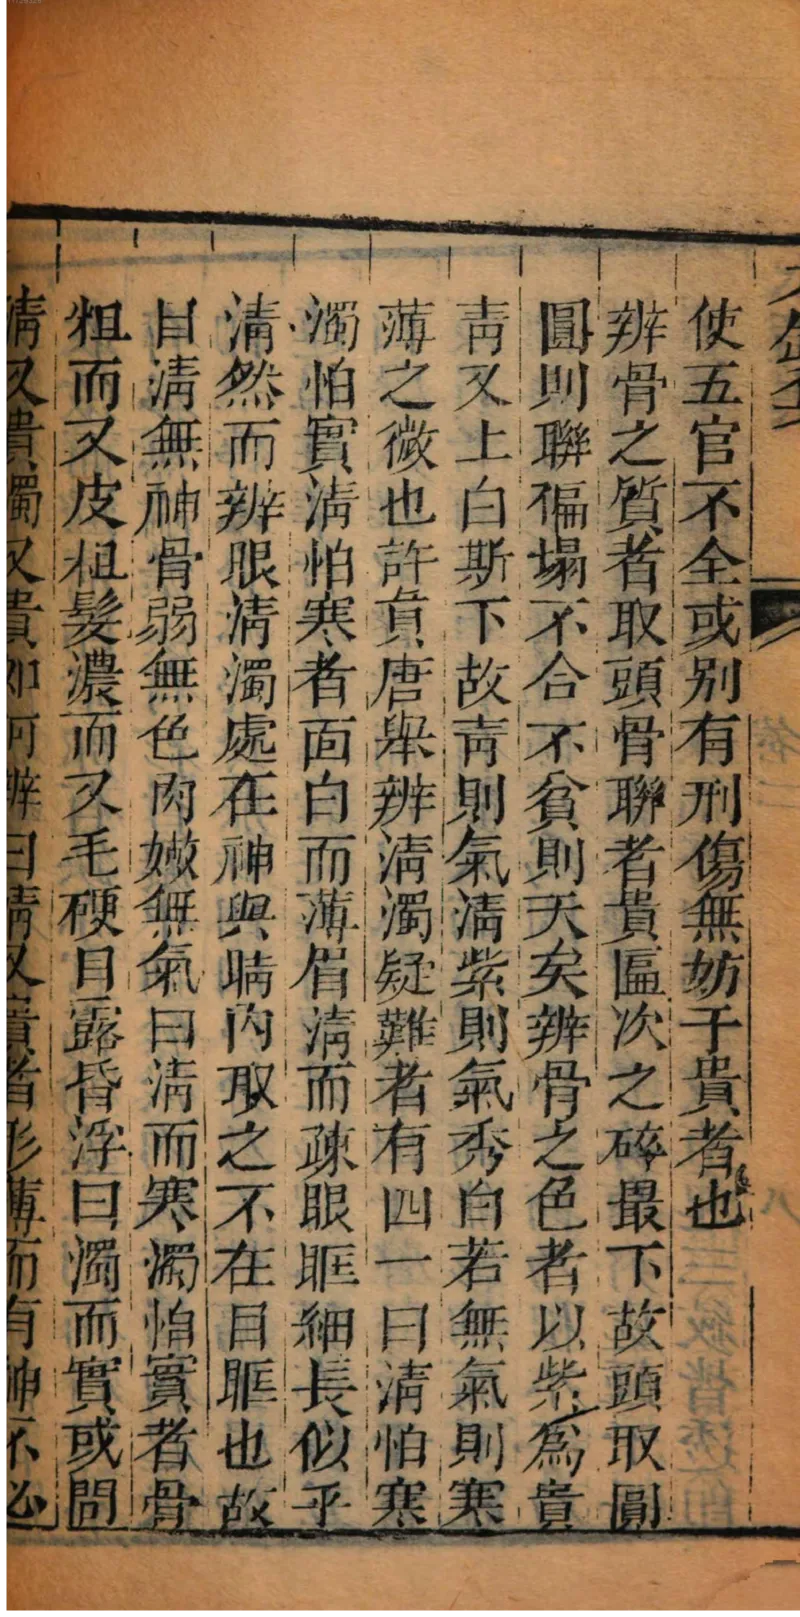 使五官不全或别有刑傷無妨于貴者也
辨骨之質者取頭骨聯者貴區次之碎最下故頭取圓
圓則聯徧塌不合不貧則天矣辨骨之色者以紫為貴
靑又上白斯下故靑則氣淸紫則氣秀白若無氣則寒
薄之微也許負唐舉辨淸濁疑難者有四一曰淸怕寒
濁怕實淸怕寒者面白而薄眉淸而疎眼眶細長似乎
淸然而辨眼淸濁處在神與睛內取之不在目眶也故
目淸無神骨弱無色肉嫩無氣曰淸而寒濁怕實者骨
粗而又皮粗髮濃而又毛硬目露昏浮曰濁而實或問
淸又貴濁又貴如何辨曰淸又貴者形薄而有神不必